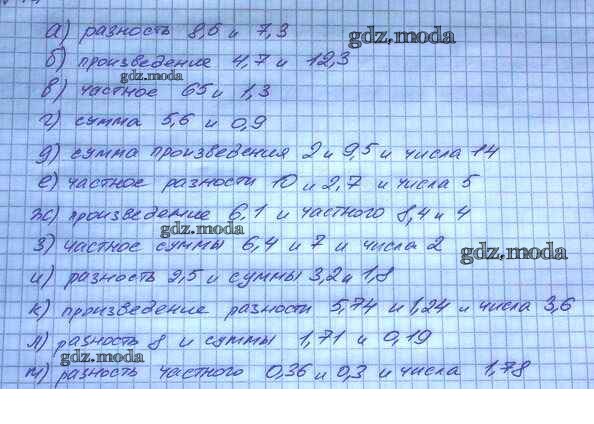 а) разность 8,6 и 7,3 gdz.moda
б) произведение 4,7 и 12,3
gdz.moda
в) частное 65 и 1,3
г) сумма 5,6 и 0,9
д) сумма произведения 2 и 9,5 и числа 14
е) частное разности 10 и 2,7 и числа 5
ж) произведение 6,1 и частного 8,4 и 4
gdz.moda
з) частное суммы 6,4 и 7 и числа 2 gdz.moda
и) разность 9,5 и суммы 3,2 и 1,8
к) произведение разности 5,74 и 1,24 и числа 3,6
л) разность 8 и суммы 1,71 и 0,19
gdz.moda
м) разность частного 0,36 и 0,3 и числа 1,78